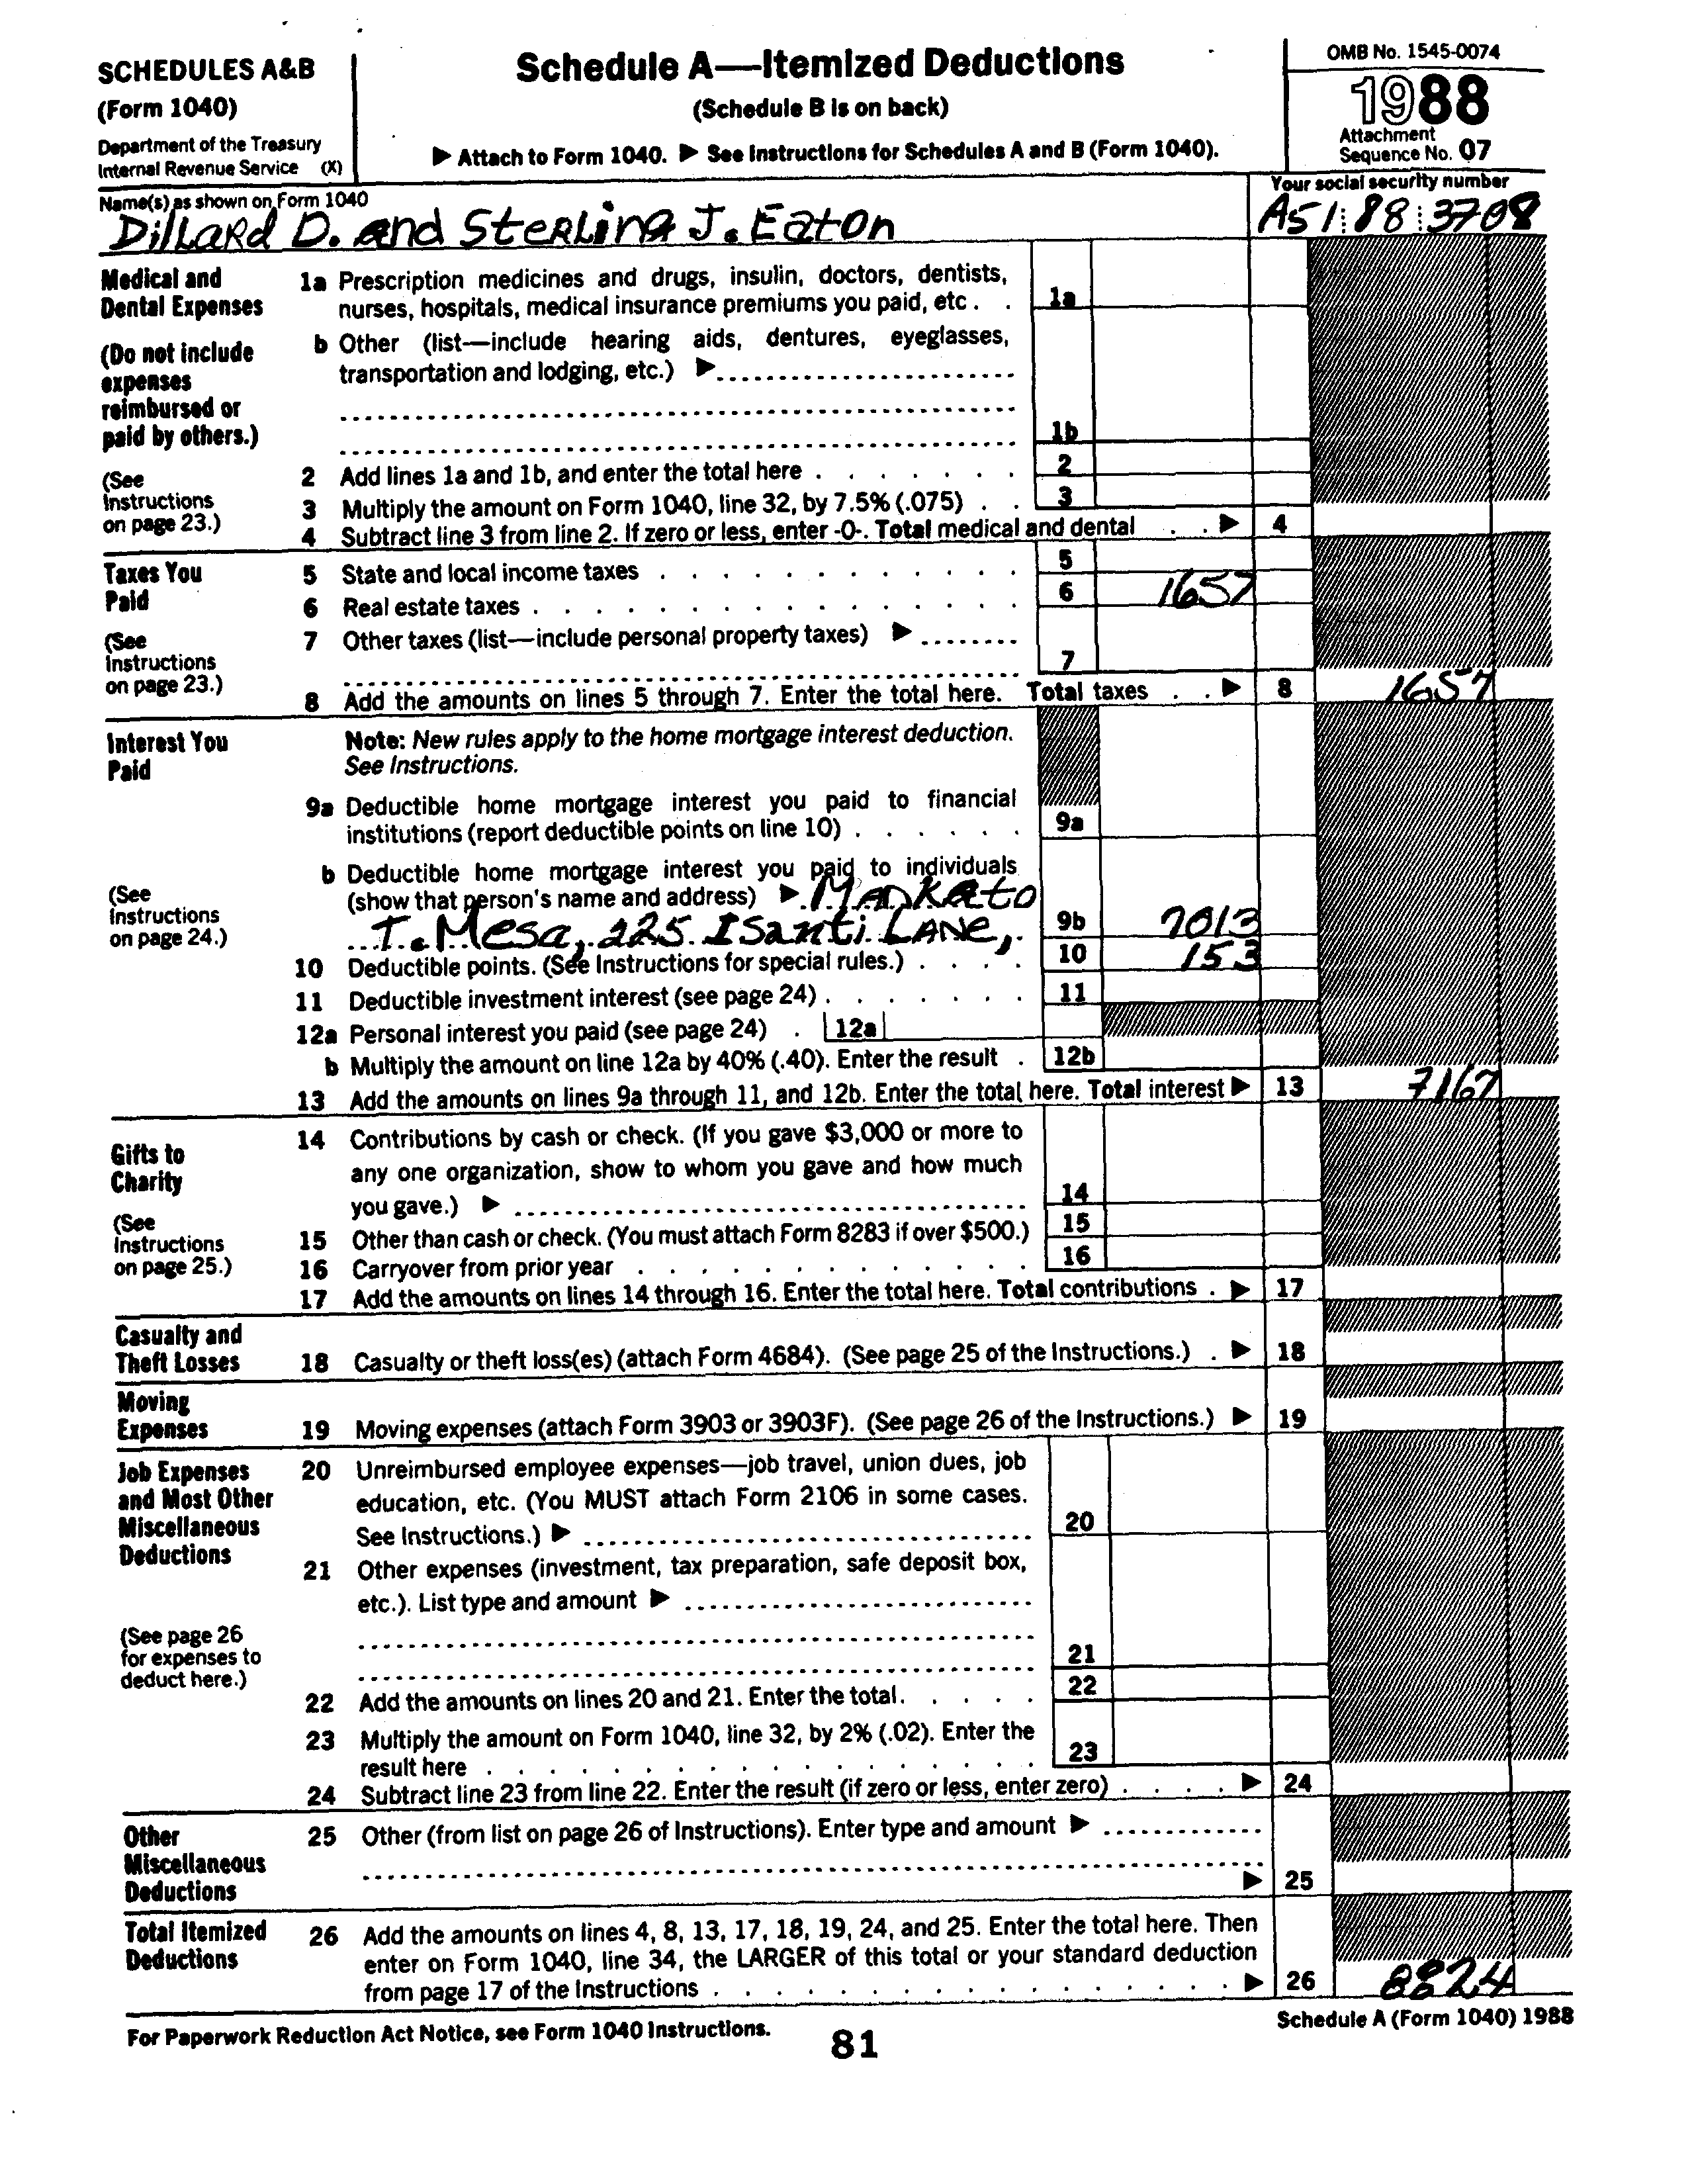 SCHEDULES A&B
(Form 1040)
Department of the Treasury
Internal Revenue Service (X)
Schedule A—Itemized Deductions
(Schedule B is on back)
▶ Attach to Form 1040. ▶ See Instructions for Schedules A and B (Form 1040).
OMB No. 1545-0074
1988
Attachment
Sequence No. 07
Name(s) as shown on Form 1040
Dillard D. and Sterling J. Eaton
Your social security number
A51:88:3708
Medical and
Dental Expenses
(Do not include
expenses
reimbursed or
paid by others.)
(See
Instructions
on page 23.)
1a Prescription medicines and drugs, insulin, doctors, dentists,
nurses, hospitals, medical insurance premiums you paid, etc . . 1a
b Other (list—include hearing aids, dentures, eyeglasses,
transportation and lodging, etc.) ▶
1b
2 Add lines 1a and 1b, and enter the total here . . . . . . . 2
3 Multiply the amount on Form 1040, line 32, by 7.5% (.075) . . 3
4 Subtract line 3 from line 2. If zero or less, enter -0-. Total medical and dental . . ▶ 4
Taxes You
Paid
(See
Instructions
on page 23.)
5 State and local income taxes . . . . . . . . . . . . 5
6 Real estate taxes . . . . . . . . . . . . . . . . 6 1657
7 Other taxes (list—include personal property taxes) ▶
7
8 Add the amounts on lines 5 through 7. Enter the total here. Total taxes . . ▶ 8 1657
Interest You
Paid
(See
Instructions
on page 24.)
Note: New rules apply to the home mortgage interest deduction.
See Instructions.
9a Deductible home mortgage interest you paid to financial
institutions (report deductible points on line 10) . . . . . . 9a
b Deductible home mortgage interest you paid to individuals
(show that person's name and address) ▶ Mankato
T. Mesa, 225 Isanti Lane, 9b 7013
10 Deductible points. (See Instructions for special rules.) . . . . 10 153
11 Deductible investment interest (see page 24) . . . . . . . 11
12a Personal interest you paid (see page 24) . 12a
b Multiply the amount on line 12a by 40% (.40). Enter the result . 12b
13 Add the amounts on lines 9a through 11, and 12b. Enter the total here. Total interest ▶ 13 7167
Gifts to
Charity
(See
Instructions
on page 25.)
14 Contributions by cash or check. (If you gave $3,000 or more to
any one organization, show to whom you gave and how much
you gave.) ▶ 14
15 Other than cash or check. (You must attach Form 8283 if over $500.) 15
16 Carryover from prior year . . . . . . . . . . . . . 16
17 Add the amounts on lines 14 through 16. Enter the total here. Total contributions . ▶ 17
Casualty and
Theft Losses
18 Casualty or theft loss(es) (attach Form 4684). (See page 25 of the Instructions.) . ▶ 18
Moving
Expenses
19 Moving expenses (attach Form 3903 or 3903F). (See page 26 of the Instructions.) ▶ 19
Job Expenses
and Most Other
Miscellaneous
Deductions
(See page 26
for expenses to
deduct here.)
20 Unreimbursed employee expenses—job travel, union dues, job
education, etc. (You MUST attach Form 2106 in some cases.
See Instructions.) ▶ 20
21 Other expenses (investment, tax preparation, safe deposit box,
etc.). List type and amount ▶
21
22 Add the amounts on lines 20 and 21. Enter the total. . . . . 22
23 Multiply the amount on Form 1040, line 32, by 2% (.02). Enter the
result here . . . . . . . . . . . . . . . . . 23
24 Subtract line 23 from line 22. Enter the result (if zero or less, enter zero) . . . . ▶ 24
Other
Miscellaneous
Deductions
25 Other (from list on page 26 of Instructions). Enter type and amount ▶
▶ 25
Total Itemized
Deductions
26 Add the amounts on lines 4, 8, 13, 17, 18, 19, 24, and 25. Enter the total here. Then
enter on Form 1040, line 34, the LARGER of this total or your standard deduction
from page 17 of the Instructions . . . . . . . . . . . . . . . . ▶ 26 8824
For Paperwork Reduction Act Notice, see Form 1040 Instructions.
Schedule A (Form 1040) 1988
81